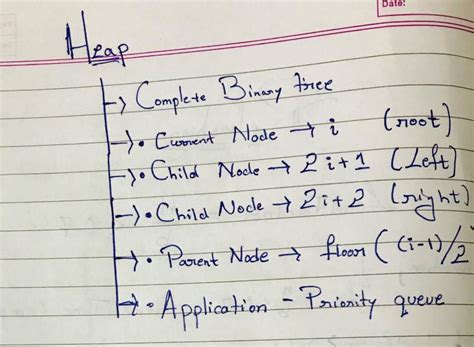 Date:
Heap
-> Complete Binary tree
-> • Current Node → i (root)
-> • Child Node → 2i+1 (Left)
-> • Child Node → 2i+2 (right)
-> • Parent Node → floor ( (i-1)/2
-> • Application - Priority queue